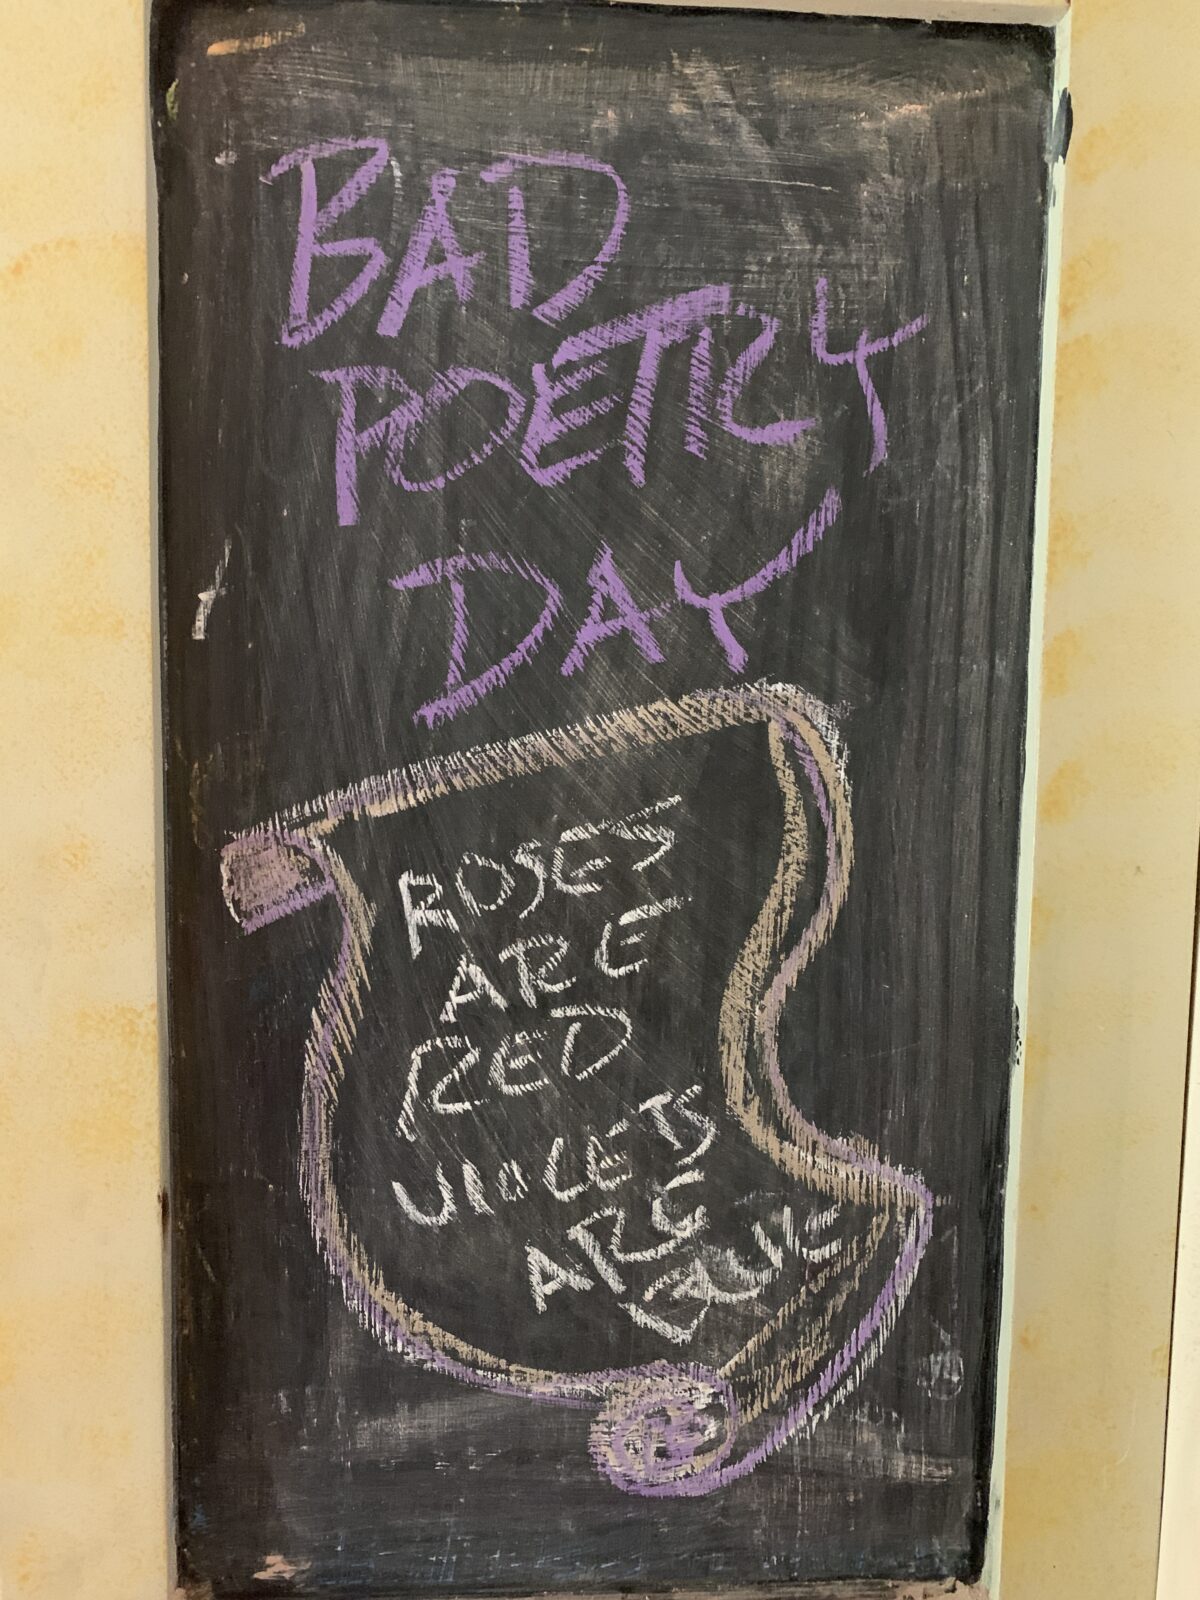 BAD
POETRY
DAY
ROSES
ARE
RED
VIOLETS
ARE
BLUE